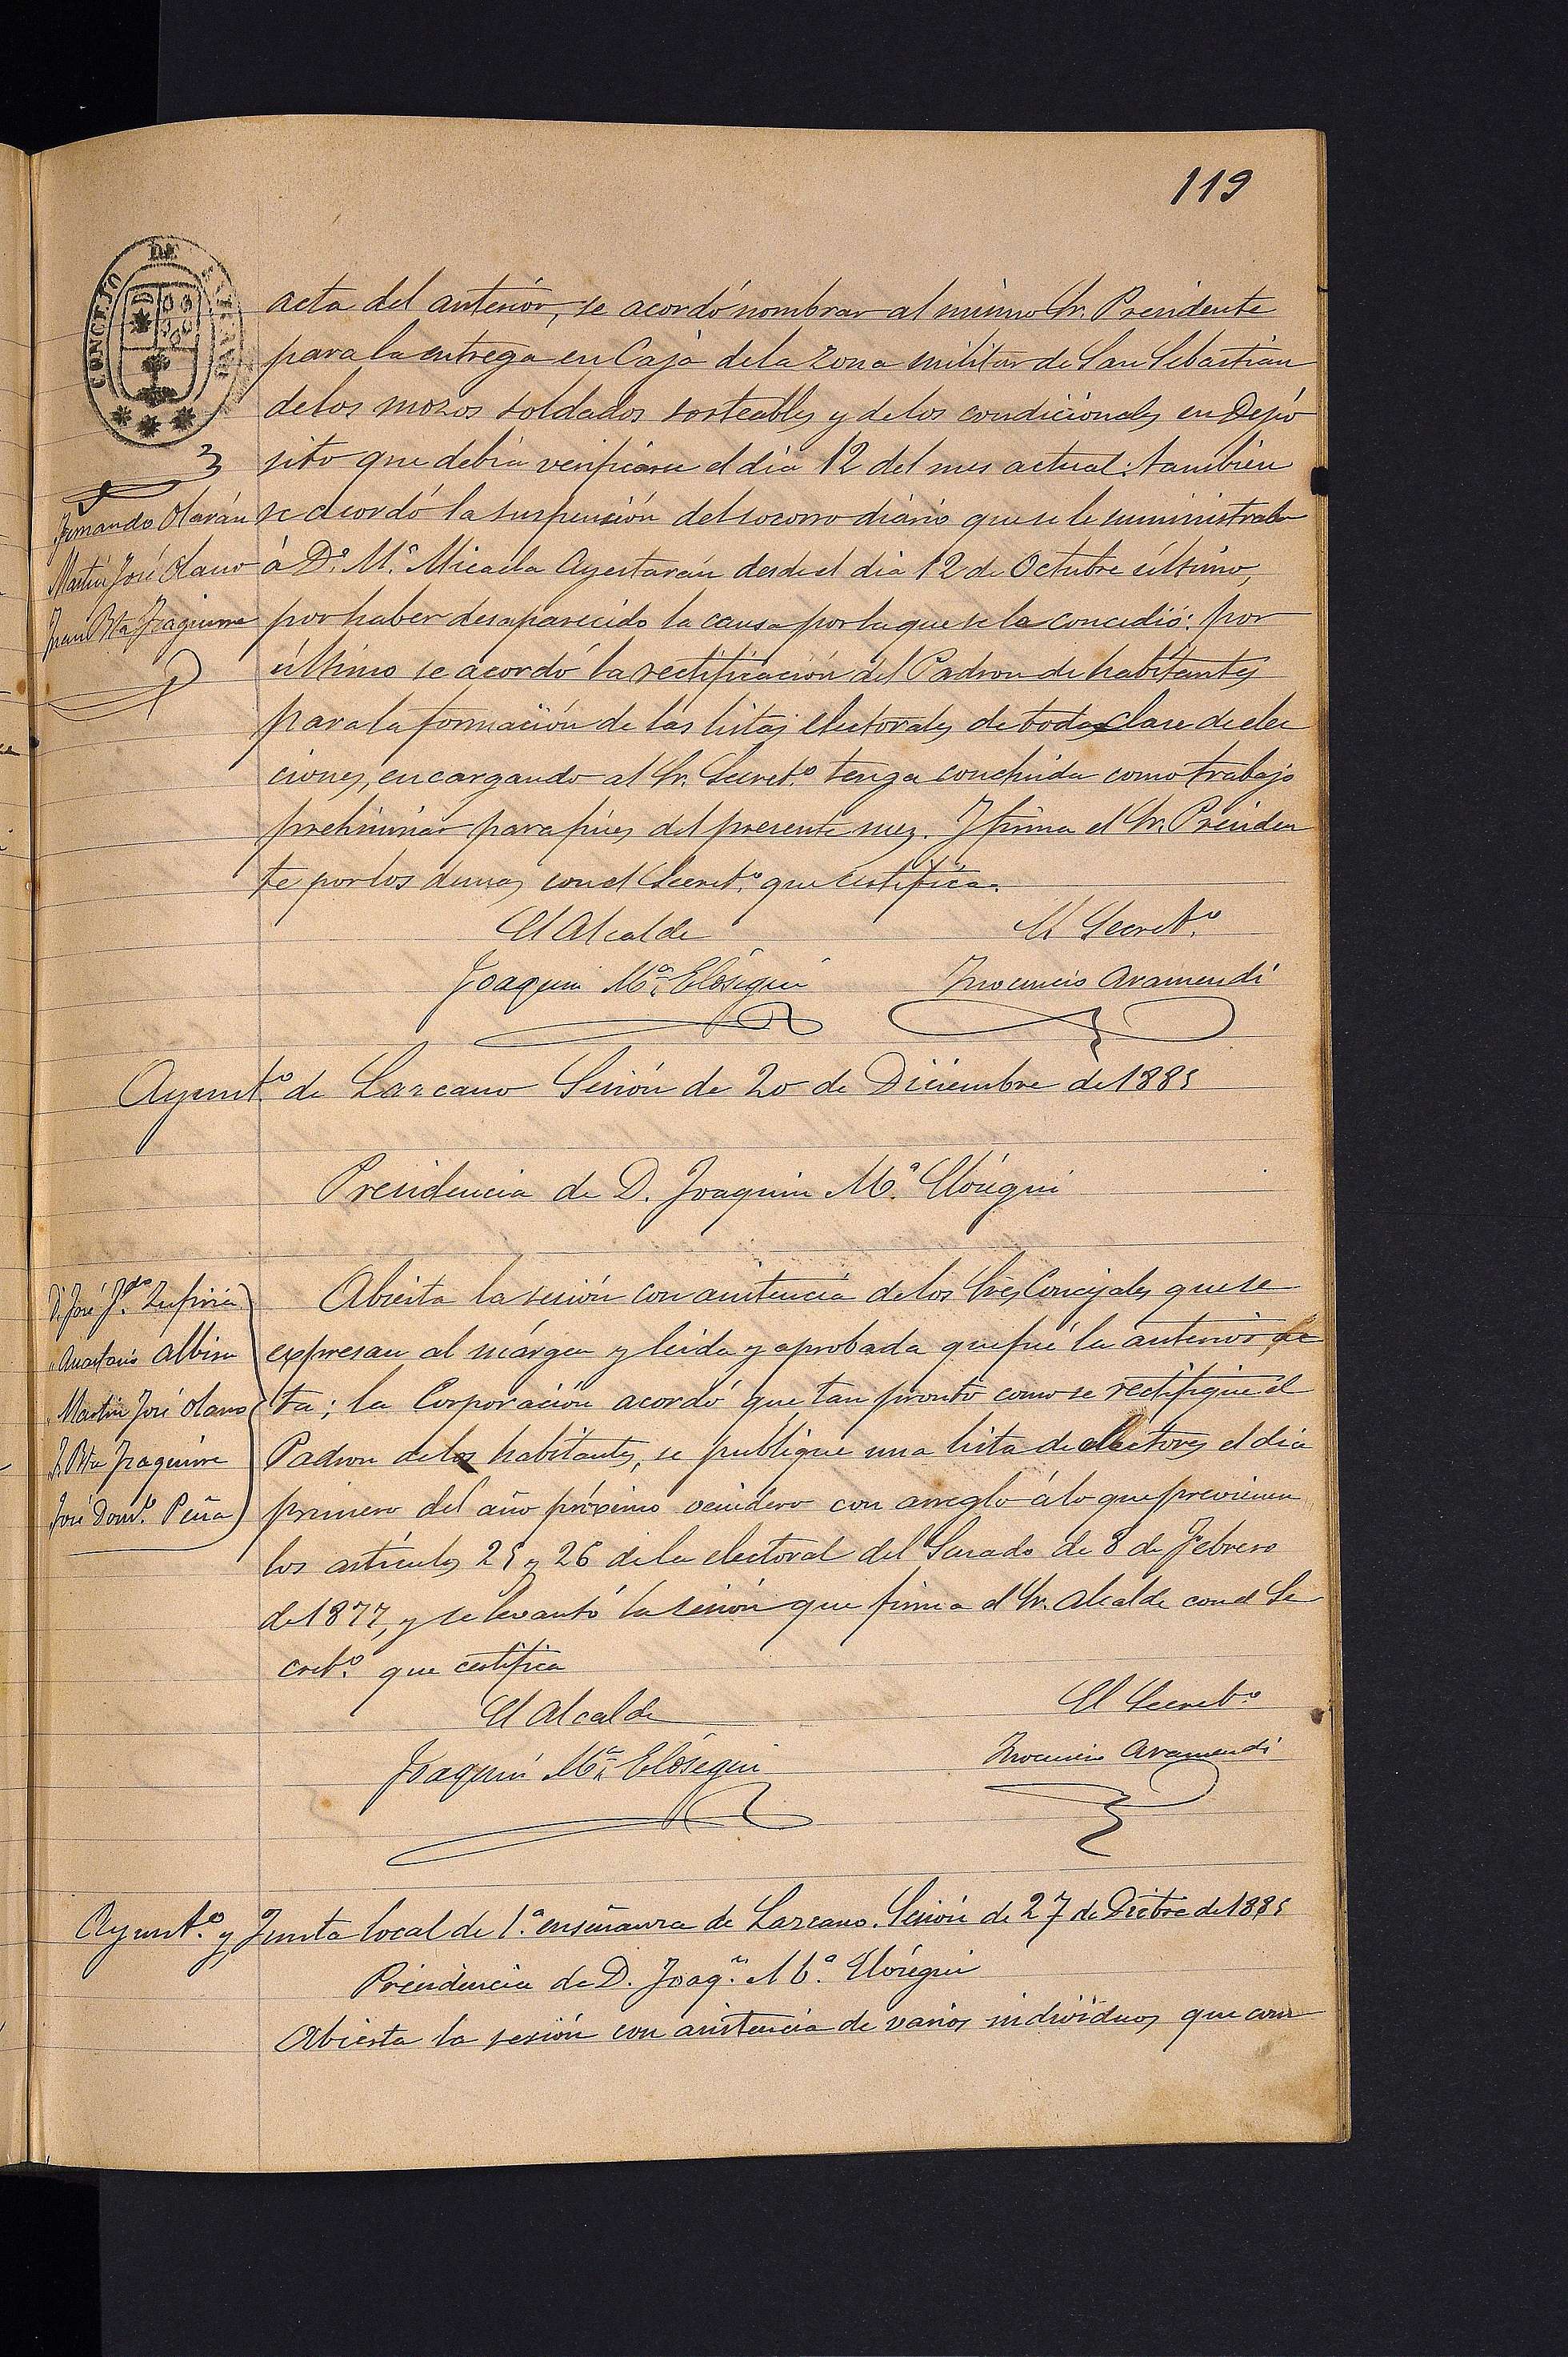 119
CONCEJO DE
acta del anterior, se acordó nombrar al mismo Sr. Presidente
para la entrega en Caja de la zona militar de San Sebastián
de los mozos soldados sorteables y de los condicionales en Depó
sito que debia verificarse el dia 12 del mes actual: también
se acordó la suspensión del socorro diário que se le suministraba
á D.ª M.ª Micaela Ayestarán desde el dia 12 de Octubre último,
por haber desaparecido la causa por la que se le concedió: por
último se acordó la rectificación del Padron de habitantes
para la formación de las listas electorales de toda clase de elec
ciones, encargando al Sr. Secret.º tenga concluida como trabajo
preliminar para fines del presente mes. Y firma el Sr. Presiden
te por los demas con el Secret.º que certifica.
Fernando Olarán
Martin José Olano
Juan Bta Yzaguirre
El Alcalde
El Secret.º
Joaquin M.ª Elósegui
Ynocencio Aramendi
Ayunt.º de Lazcano Sesión de 20 de Diciembre de 1885
Presidencia de D. Joaquin M.ª Elósegui
D. José J. Zufiria
" Anastasio Albisu
" Martin José Olano
J. Bta Yzaguirre
José Dom.º Peña
Abierta la sesión con asistencia de los Sres Concejales que se
expresan al márgen y leida y aprobada que fué la anterior ac
ta; la Corporación acordó que tan pronto como se rectifique el
Padron de los habitantes, se publique una lista de electores el dia
primero del año próximo venidero con arreglo á lo que previenen
los artículos 25 y 26 de la electoral del Senado de 8 de Febrero
de 1877, y se levantó la sesión que firma el Sr. Alcalde con el Se
cret.º que certifica
El Alcalde
El Secret.º
Joaquin M.ª Elósegui
Ynocencio Aramendi
Ayunt.º y Junta local de 1.ª enseñanza de Lazcano. Sesión de 27 de Dictbre de 1885
Presidencia de D. Joaq.n M.ª Elósegui
Abierta la sesión con asistencia de varios individuos que com